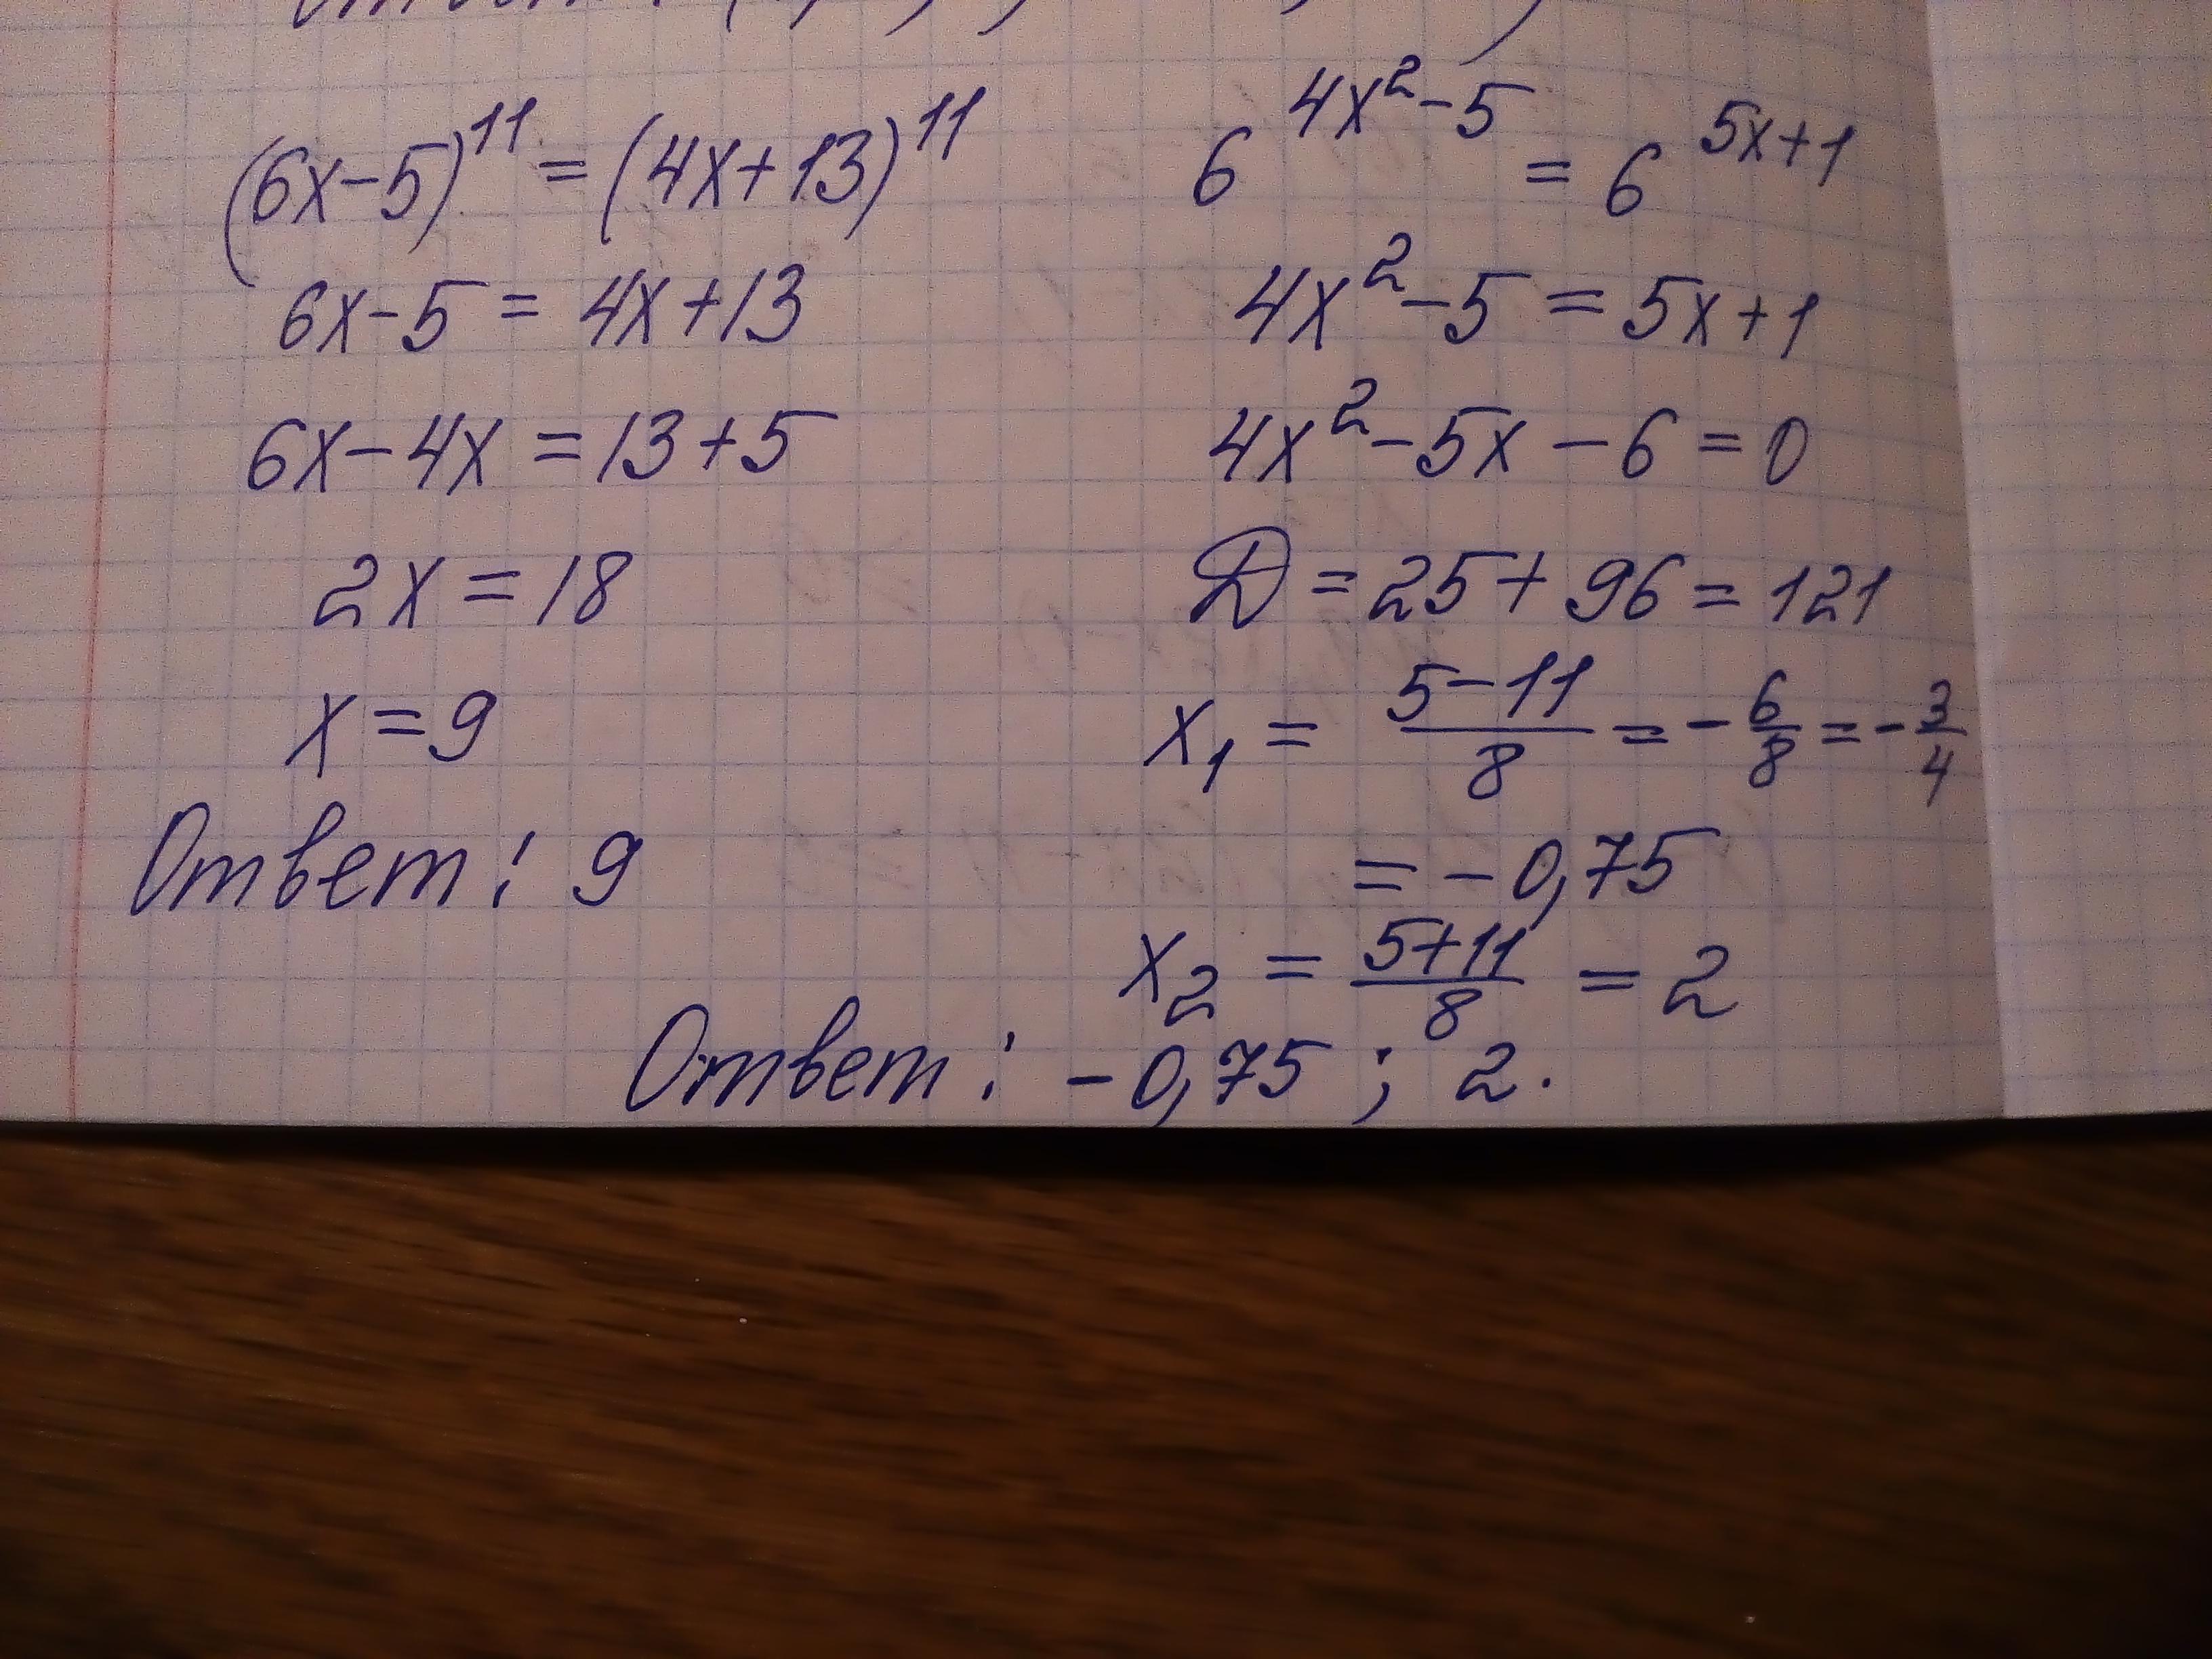 (6x-5)¹¹ = (4x+13)¹¹
6x-5 = 4x+13
6x-4x = 13+5
2x = 18
x = 9
Ответ: 9
6^(4x²-5) = 6^(5x+1)
4x²-5 = 5x+1
4x²-5x-6 = 0
D = 25+96 = 121
x₁ = (5-11)/8 = -6/8 = -3/4
= -0,75
x₂ = (5+11)/8 = 2
Ответ: -0,75; 2.